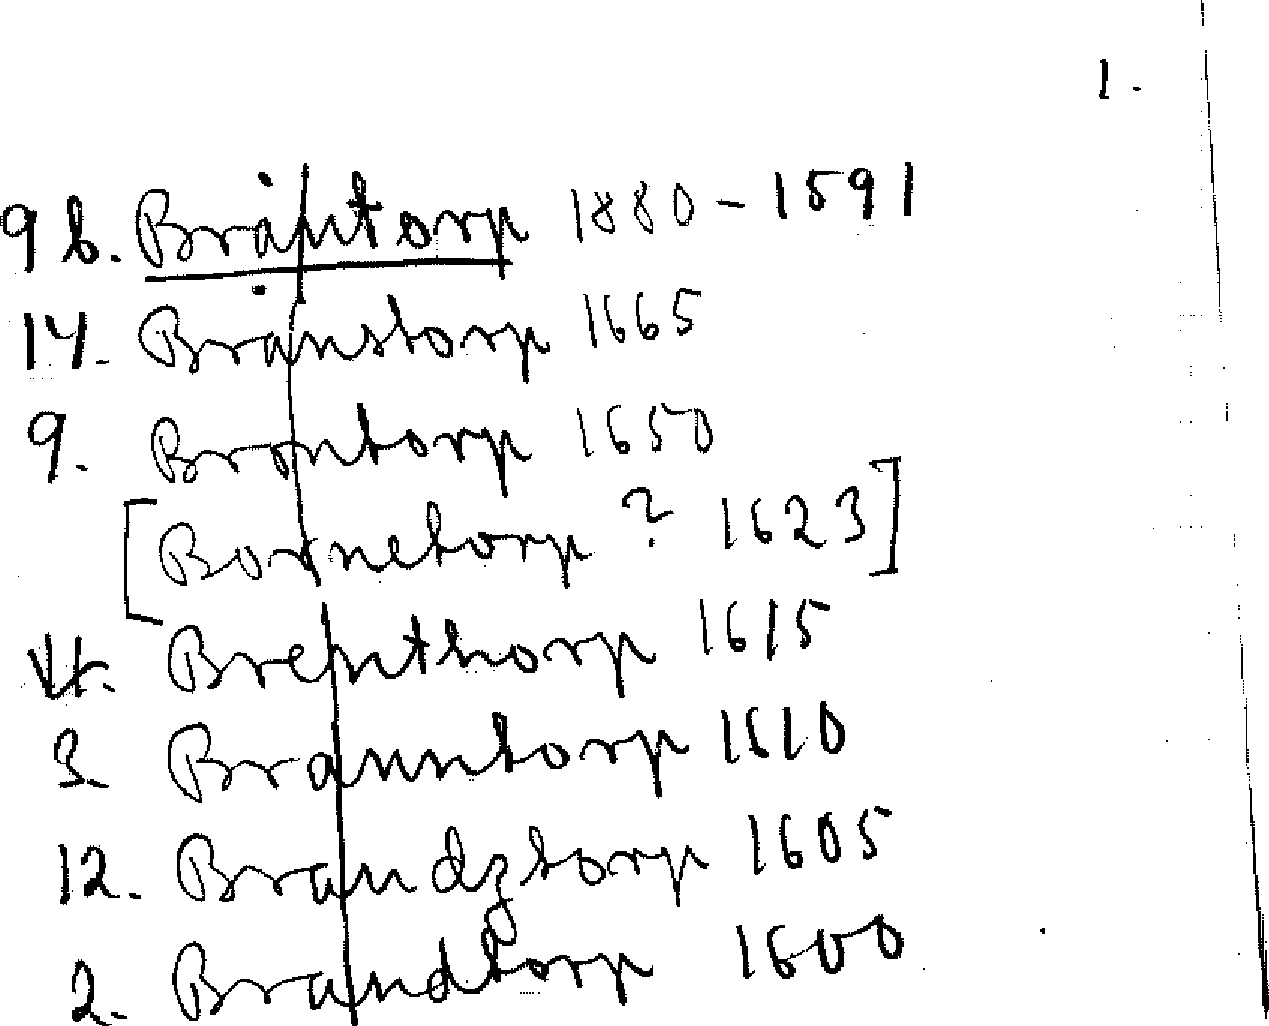 1.
9 b. Bråntorp 1880-1591
14. Brånstorp 1665
9. Brontorp 1650
[Bornetorp ? 1623]
Brenthorp 1615
3 Branntorp 1610
12. Brandztorp 1605
2. Brandtorp 1600